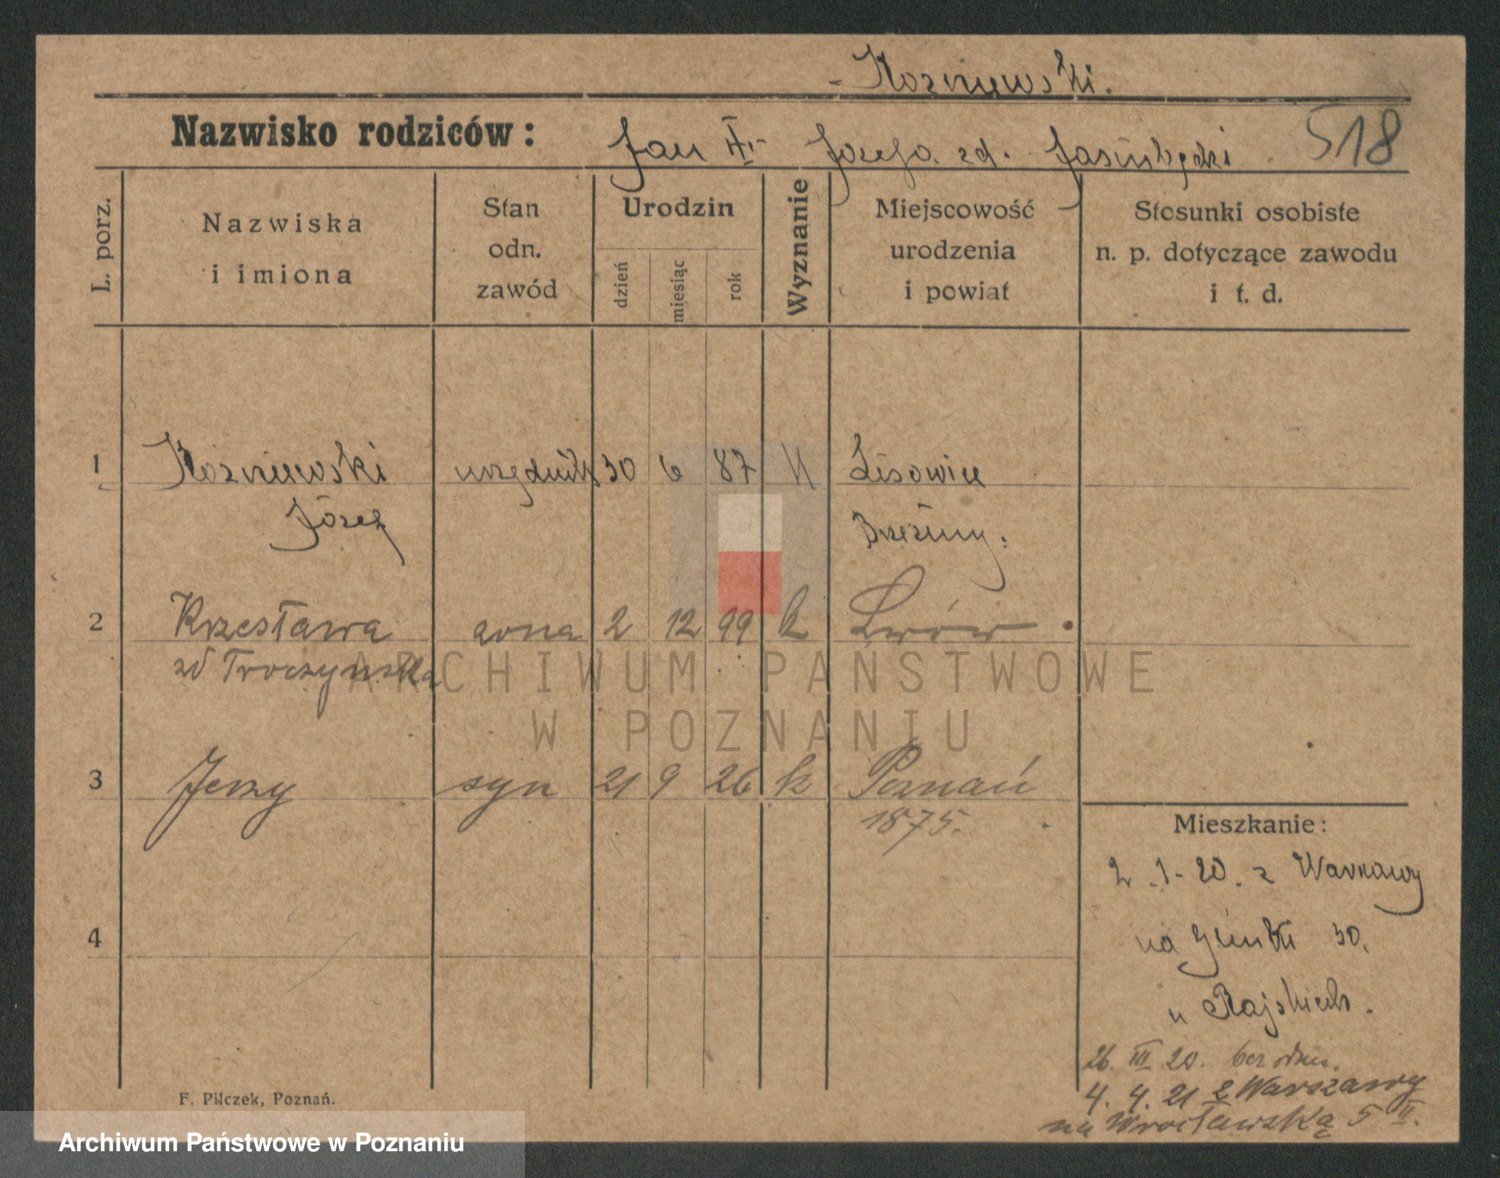 Kozniewski.
Nazwisko rodziców: Jan Józefa zd. 518
L. porz.
Nazwiska i imiona
Stan odn. zawód
Urodzin
dzień miesiąc rok
Wyznanie
Miejscowość urodzenia i powiat
Stosunki osobiste n. p. dotyczące zawodu i t. d.
1 Kozniewski urzędnik 30 6 87 Lisowice
Józef Brzeziny.
2 Krzesława żona 2 12 99 k Lwów
zd Troczyńska
3 Jerzy syn 21 9 26 k Poznań
1875.
4
Mieszkanie:
2.1-20. z Warszawy
na 30.
u
26. III 20.
4. 4. 21 z Warszawy
na Wrocławską 5 II.
F. Pilczek, Poznań.
ARCHIWUM PAŃSTWOWE
W POZNANIU
Archiwum Państwowe w Poznaniu